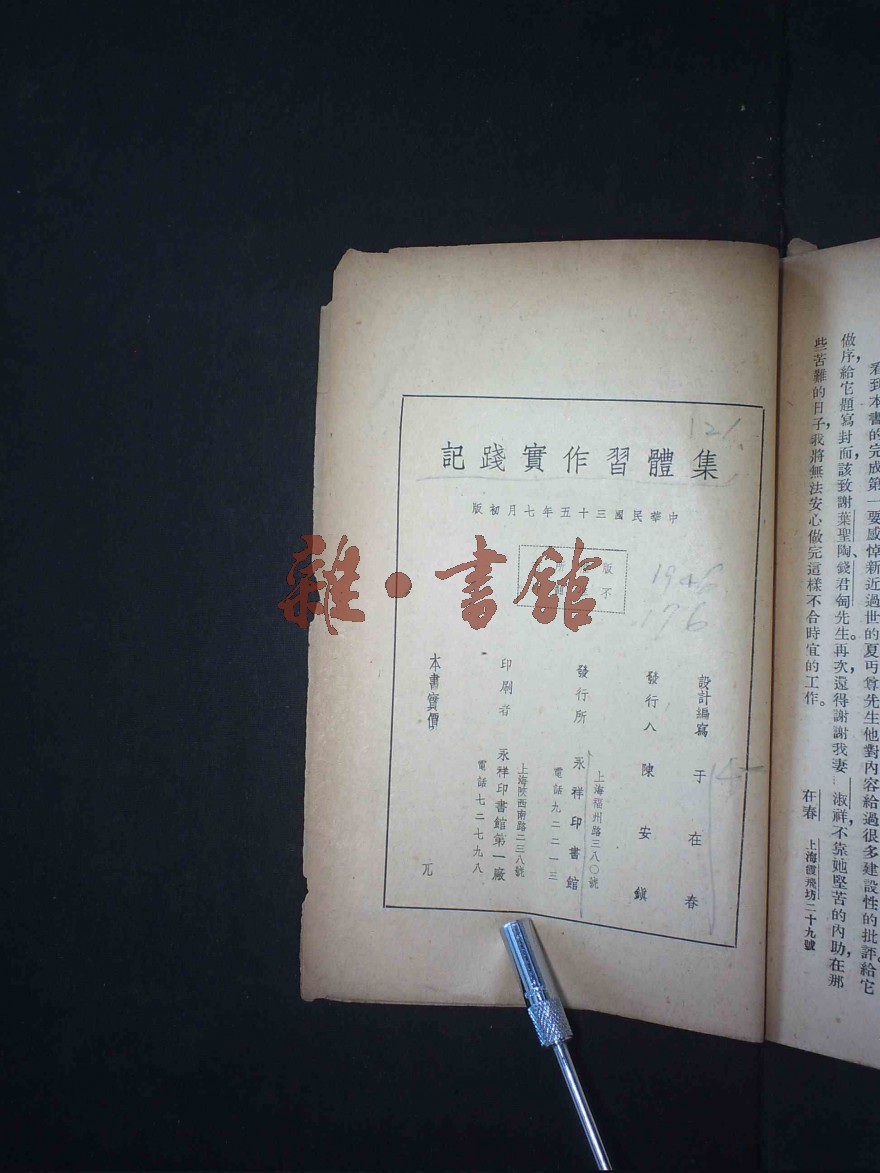 看到本書的完成第一要感悼新近過世的夏丏尊先生他對內容給過很多建設性的批評。給它
做序,給它題寫封面,該致謝葉聖陶、錢君匋先生。再次還得謝謝我妻 淑祥,不靠她堅苦的內助,在那
些苦難的日子,我將無法安心做完這樣不合時宜的工作。
在春 上海霞飛坊二十九號
集體習作實踐記
中華民國三十五年七月初版
版
不
設計編寫 于在春
發行人 陳安鎮
發行所 永祥印書館
上海福州路三八〇號
電話九二二一三
印刷者 永祥印書館第一廠
上海陝西南路二三八號
電話七二七九八
本書實價 元
121
1946
176
雜·書館